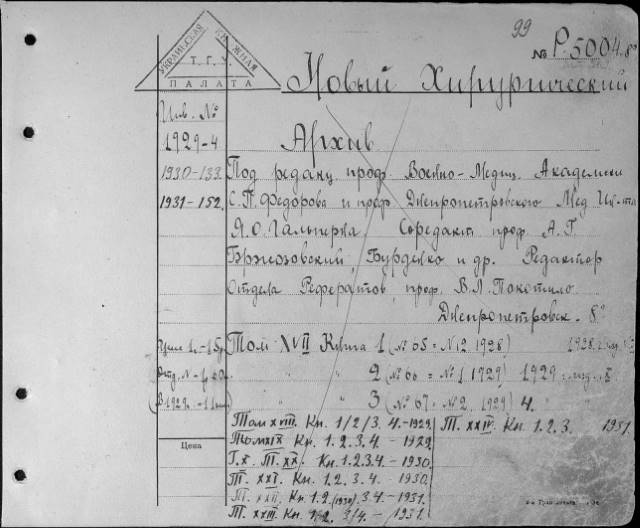 99
№ Р.5004 8°
УКРАИНСКАЯ КНИЖНАЯ
Т.Г.У.
ПАЛАТА
Новый Хирургический
Инв. №
1929-4
Архив
1930-133. Под редакц. проф. Военно-Медиц. Академии
1931-152. С.П. Федорова и проф. Днепропетровского Мед. Ин-та
Я.О. Гальперна. Соредакт проф. А.Г.
Бржозовский, Бурденко и др. Редактор
отдела Рефератов проф. В.Л. Покотило
Днепропетровск. 8°
Том XVII Книга 1 (№ 65 = № 12 1928) 1928
" " 2 (№ 66 = № 1 1929) 1929
" " 3 (№ 67 = № 2, 1929) 4.
Том XVIII. Кн. 1/2/3. 4.-1929.
Том XIX Кн. 1. 2. 3. 4 - 1929
Цена
Т. XX. Кн. 1.2.3.4 - 1930.
Т. XXI. Кн. 1. 2. 3. 4. - 1930.
Т. XXII. Кн. 1.2. (1930) 3.4 - 1931.
Т. XXIII. Кн. 1/2. 3/4. - 1931.
Т. XXIV. Кн. 1. 2. 3. 1931.